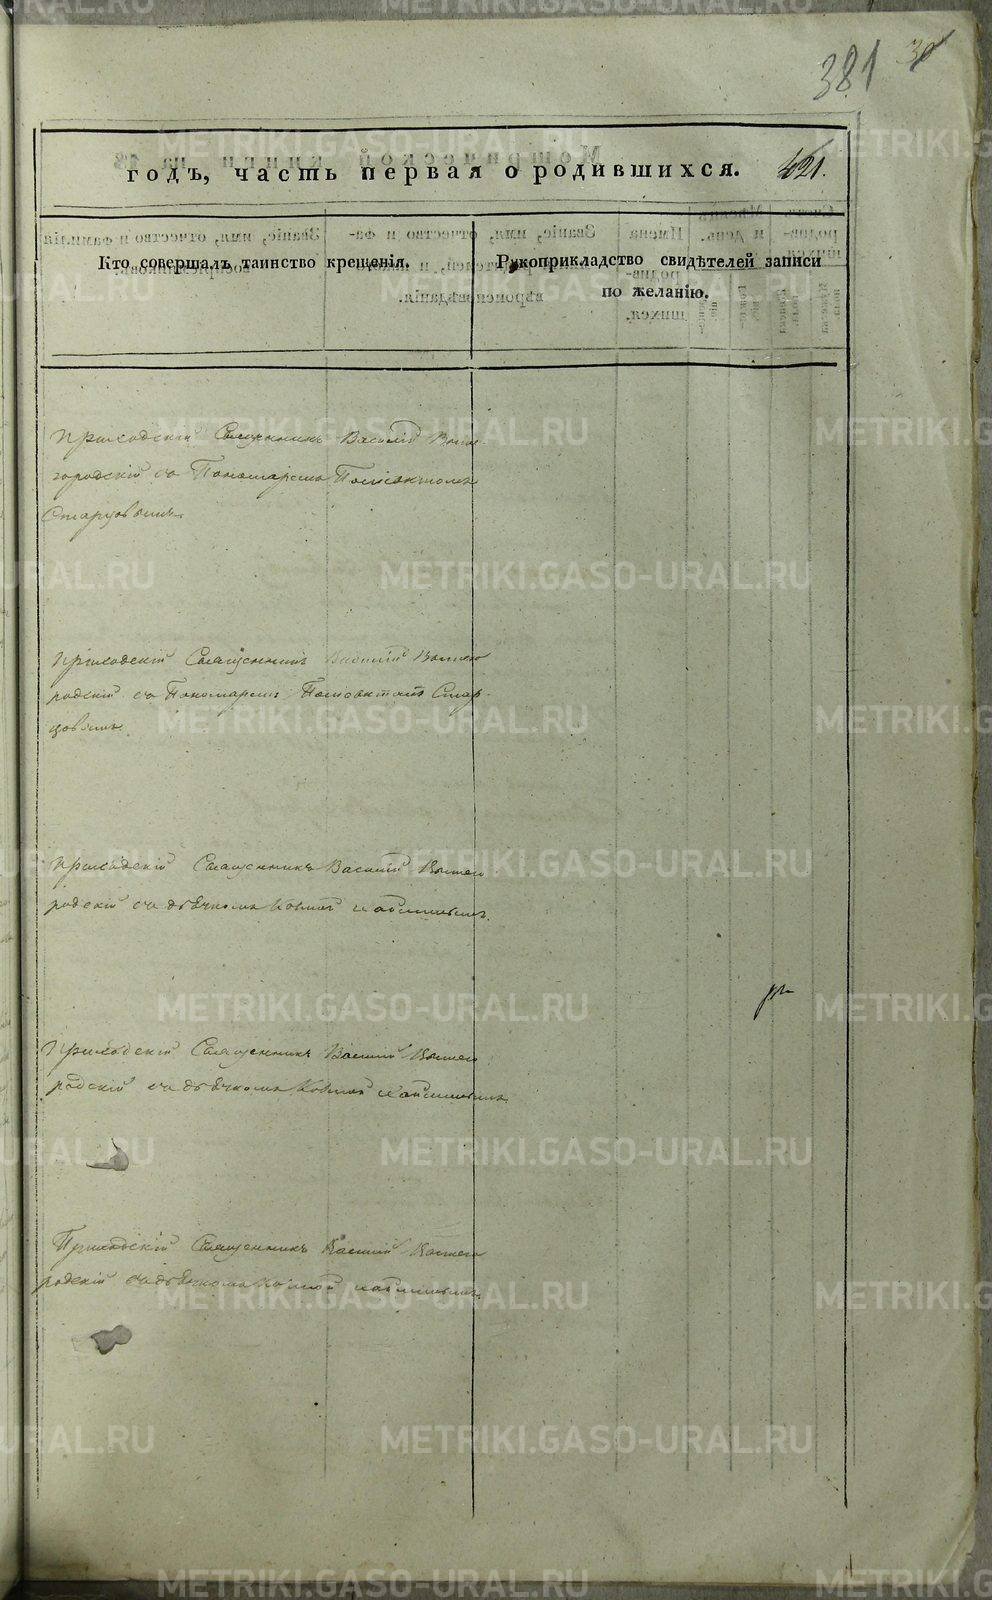 381
годъ, часть первая о родившихся. 421.
Кто совершалъ таинство крещенія.
Рукоприкладство свидѣтелей записи
по желанію.
Приходскій Священникъ Василій Вышего
родскій съ Пономаремъ
Старцовымъ.
Приходскій Священникъ Василій Вышего
родскій съ Пономаремъ Стар
цовымъ.
Приходскій Священникъ Василій Вышего
родскій съ дьячкомъ Козмой
Приходскій Священникъ Василій Вышего
родскій съ дьячкомъ Козмой
Приходскій Священникъ Василій Вышего
родскій съ дьячкомъ Козмой
METRIKI.GASO-URAL.RU